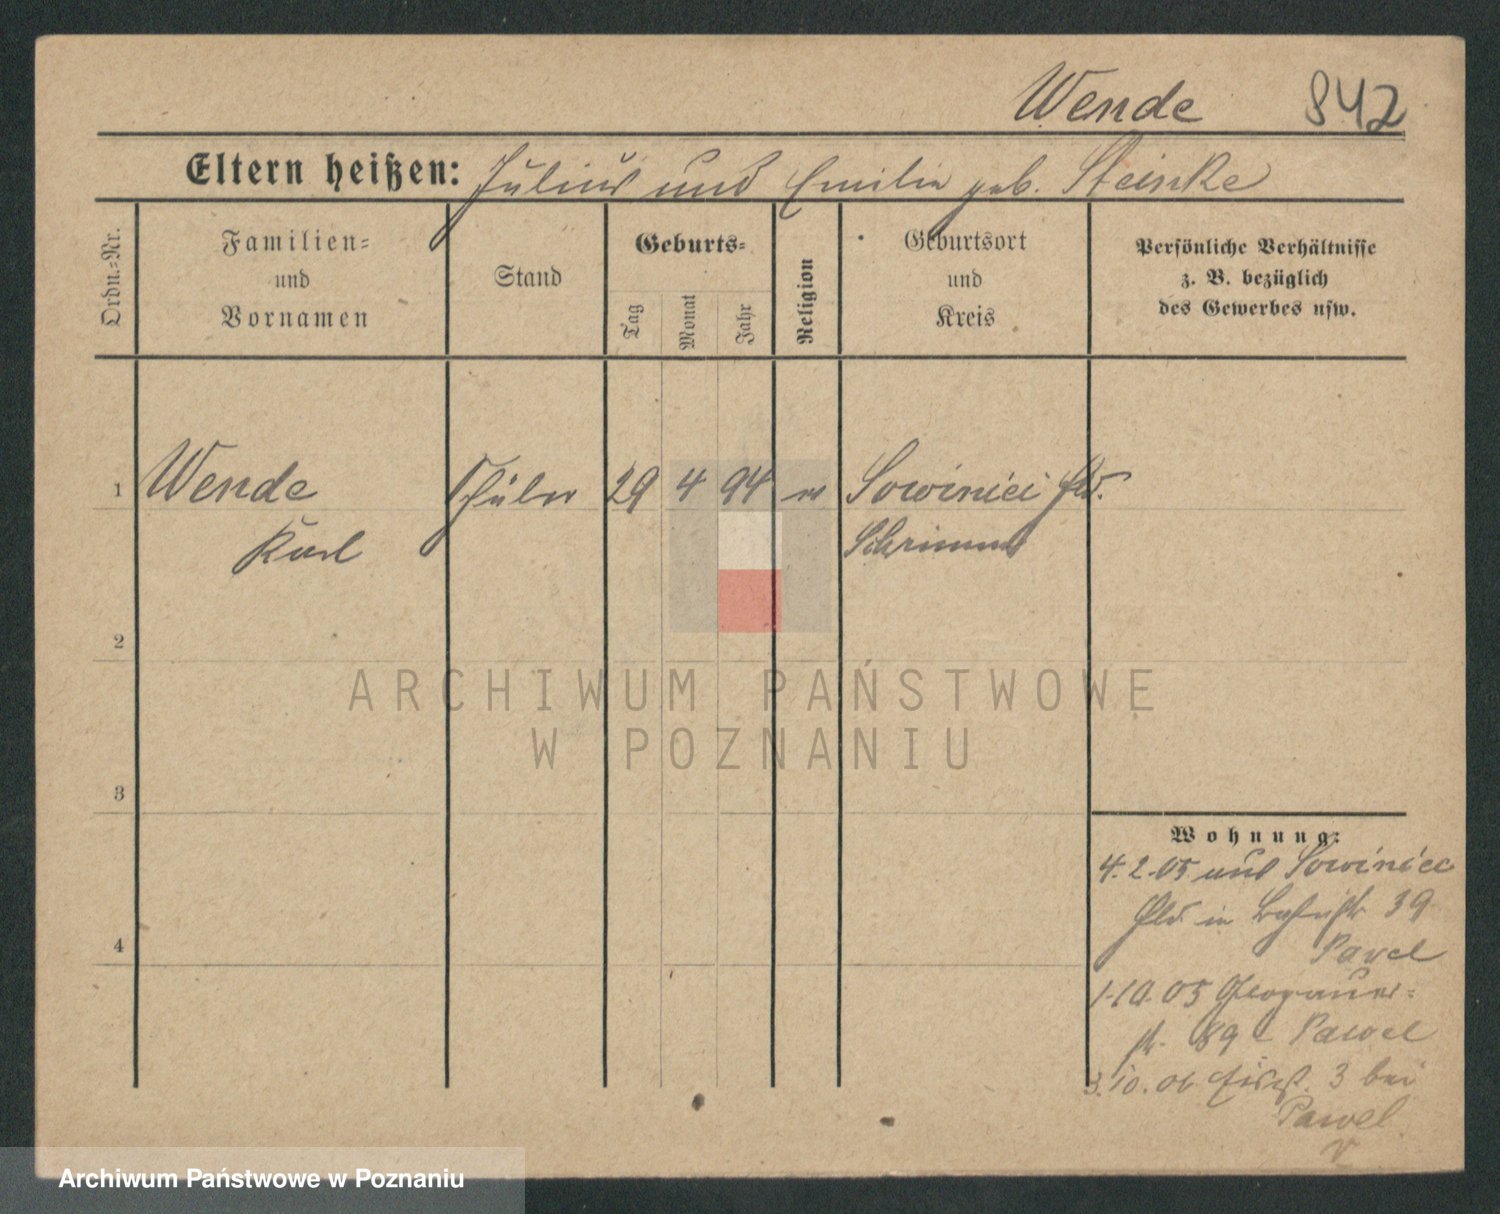 Wende 842
Eltern heißen: Julius und Emilie geb. Steinke
Ordn.=Nr.
Familien=
und
Vornamen
Stand
Geburts=
Tag
Monat
Jahr
Religion
Geburtsort
und
Kreis
Persönliche Verhältnisse
z. B. bezüglich
des Gewerbes usw.
1 Wende Schüler 29 4 94 Sowiniec
Karl Schrimm
2
3
4
Wohnung:
4.2.05 aus Sowiniec
in 39
Pavel
1.10.05 Glogauer=
str. 89 Pawel
3.10.06 3 bei
Pawel
ARCHIWUM PAŃSTWOWE
W POZNANIU
Archiwum Państwowe w Poznaniu